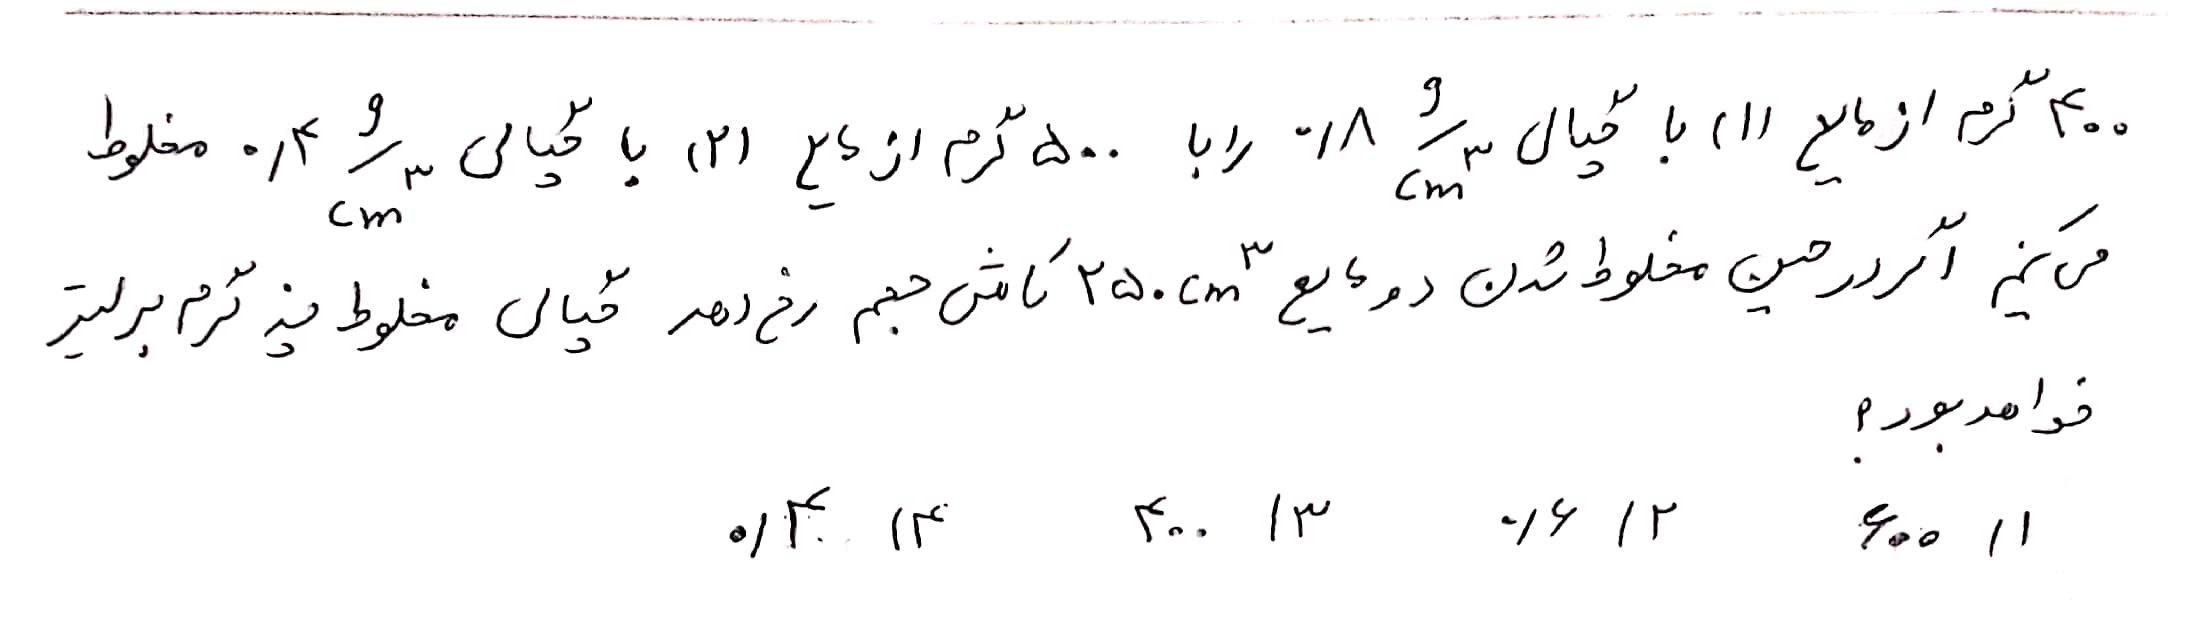 ۴۰۰ گرم از مایع (۱) با چگالی ۰/۸ g/cm³ را با ۵۰۰ گرم از مایع (۲) با چگالی ۰/۴ g/cm³ مخلوط
می‌کنیم اگر در حین مخلوط شدن دو مایع ۲۵۰ cm³ کاهش حجم رخ دهد چگالی مخلوط چند گرم بر لیتر
خواهد بود؟
۱) ۶۰۰ ۲) ۰/۶ ۳) ۴۰۰ ۴) ۰/۴